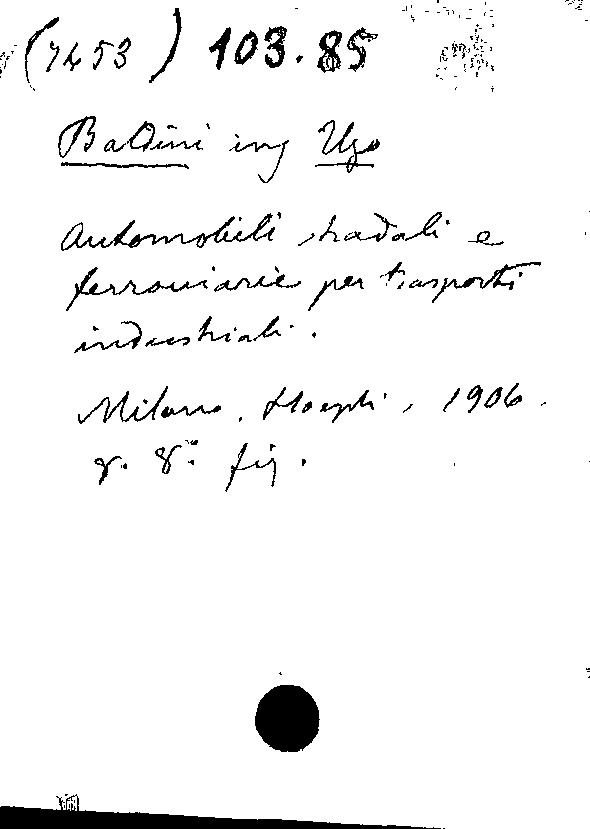 (7453) 103.85
Baldini ing Ugo
Automobili stradali e
ferroviarie per trasporti
industriali.
Milano, Hoepli, 1906.
8°. fig.